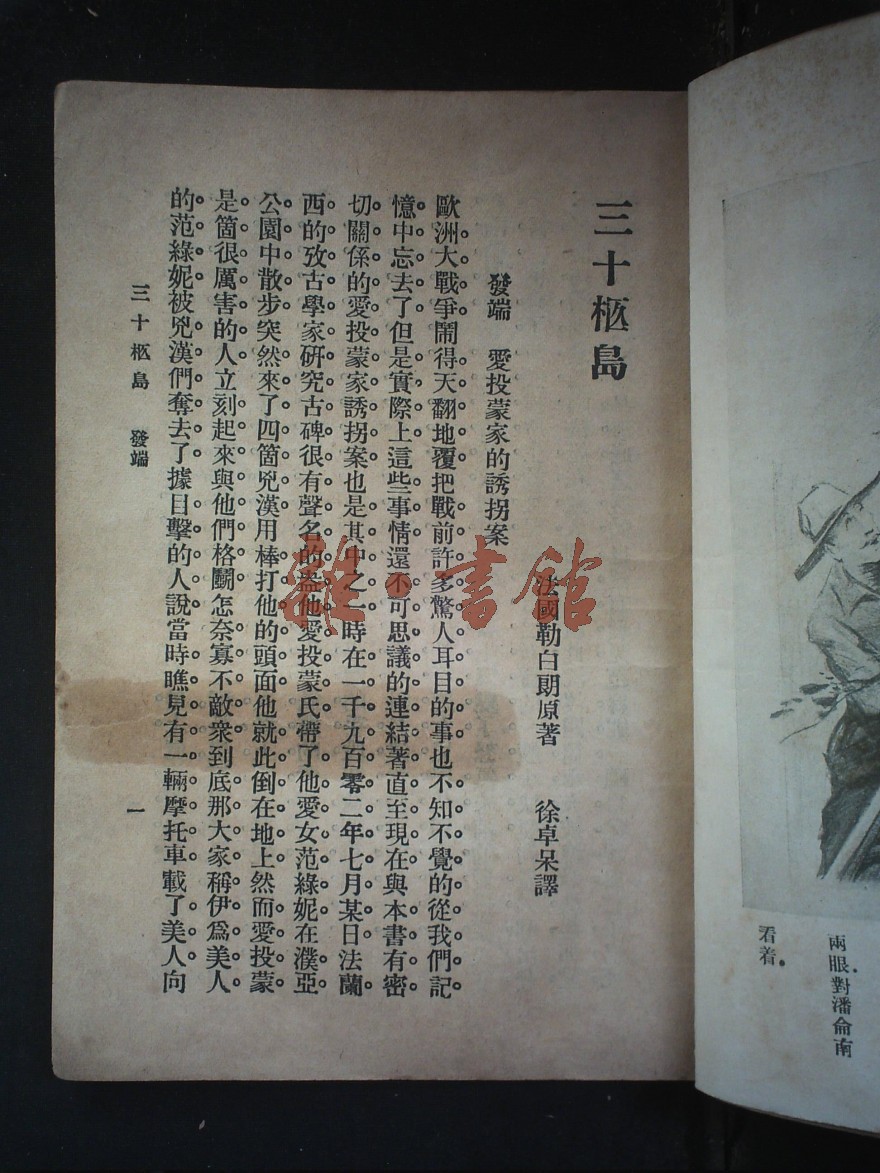 兩眼對潘侖南
看着
三十柩島
法國勒白朗原著 徐卓呆譯
發端 愛投蒙家的誘拐案
歐洲大戰爭鬧得天翻地覆把戰前許多驚人耳目的事也不知不覺的從我們記
憶中忘去了但是實際上這些事情還不可思議的連結著直至現在與本書有密
切關係的愛投蒙家誘拐案也是其中之一時在一千九百零二年七月某日法蘭
西的攷古學家研究古碑很有聲名的盎他愛投蒙氏帶了他愛女范綠妮在濮亞
公園中散步突然來了四箇兇漢用棒打他的頭面他就此倒在地上然而愛投蒙
是箇很厲害的人立刻起來與他們格鬬怎奈寡不敵衆到底那大家稱伊爲美人
的范綠妮被兇漢們奪去了據目擊的人說當時瞧見有一輛摩托車載了美人向
三十柩島 發端 一
雜·書館